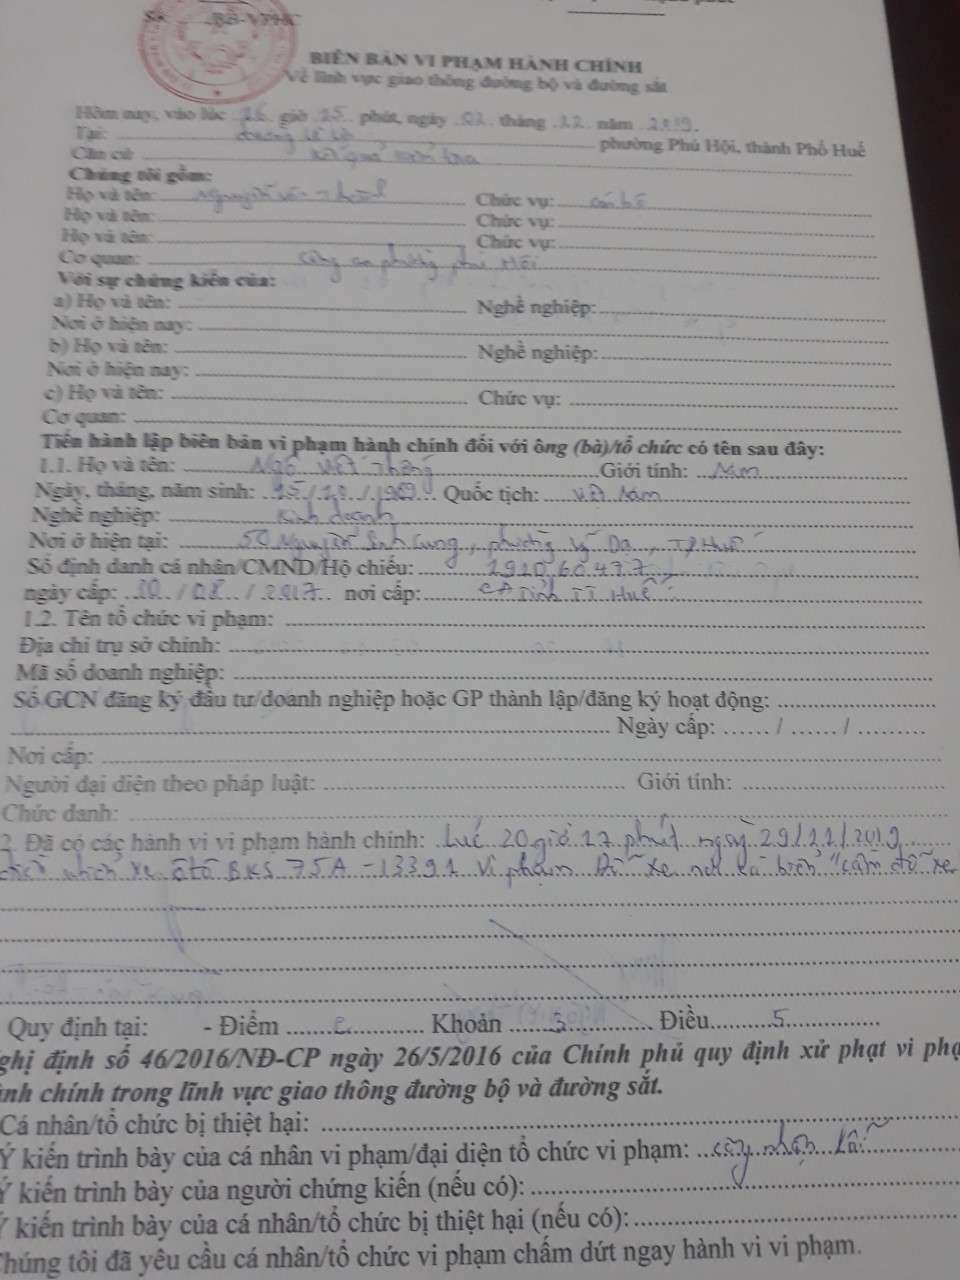 BB-VPHC
BIÊN BẢN VI PHẠM HÀNH CHÍNH
Về lĩnh vực giao thông đường bộ và đường sắt
Hôm nay, vào lúc 16 giờ 15 phút, ngày 02 tháng 12 năm 2019.
Tại: phường Phú Hội, thành Phố Huế
Căn cứ
Chúng tôi gồm:
Họ và tên: Nguyễn Chức vụ: cán bộ
Họ và tên: Chức vụ:
Họ và tên: Chức vụ:
Cơ quan: Công an phường Phú Hội
Với sự chứng kiến của:
a) Họ và tên: Nghề nghiệp:
Nơi ở hiện nay:
b) Họ và tên: Nghề nghiệp:
Nơi ở hiện nay:
c) Họ và tên: Chức vụ:
Cơ quan:
Tiến hành lập biên bản vi phạm hành chính đối với ông (bà)/tổ chức có tên sau đây:
1.1. Họ và tên: Ngô Viết Thắng Giới tính: Nam
Ngày, tháng, năm sinh: 15/10/1969 Quốc tịch: Việt Nam
Nghề nghiệp: Kinh doanh
Nơi ở hiện tại: 50 Nguyễn Sinh Cung, phường Vỹ Dạ, TP Huế
Số định danh cá nhân/CMND/Hộ chiếu:
ngày cấp: 10/08/2017 nơi cấp: CA Tỉnh TT Huế
1.2. Tên tổ chức vi phạm:
Địa chỉ trụ sở chính:
Mã số doanh nghiệp:
Số GCN đăng ký đầu tư/doanh nghiệp hoặc GP thành lập/đăng ký hoạt động:
Ngày cấp: ...... / ...... / .........
Nơi cấp:
Người đại diện theo pháp luật: Giới tính:
Chức danh:
2. Đã có các hành vi vi phạm hành chính: Lúc 20 giờ 17 phút ngày 29/11/2019
xe ôtô BKS 75A-13391 vi phạm Đỗ xe nơi có biển "cấm đỗ xe
Quy định tại: - Điểm e Khoản 3 Điều 5
ghị định số 46/2016/NĐ-CP ngày 26/5/2016 của Chính phủ quy định xử phạt vi phạ
ành chính trong lĩnh vực giao thông đường bộ và đường sắt.
Cá nhân/tổ chức bị thiệt hại:
Ý kiến trình bày của cá nhân vi phạm/đại diện tổ chức vi phạm: công nhận lỗi
Ý kiến trình bày của người chứng kiến (nếu có):
Ý kiến trình bày của cá nhân/tổ chức bị thiệt hại (nếu có):
Chúng tôi đã yêu cầu cá nhân/tổ chức vi phạm chấm dứt ngay hành vi vi phạm.